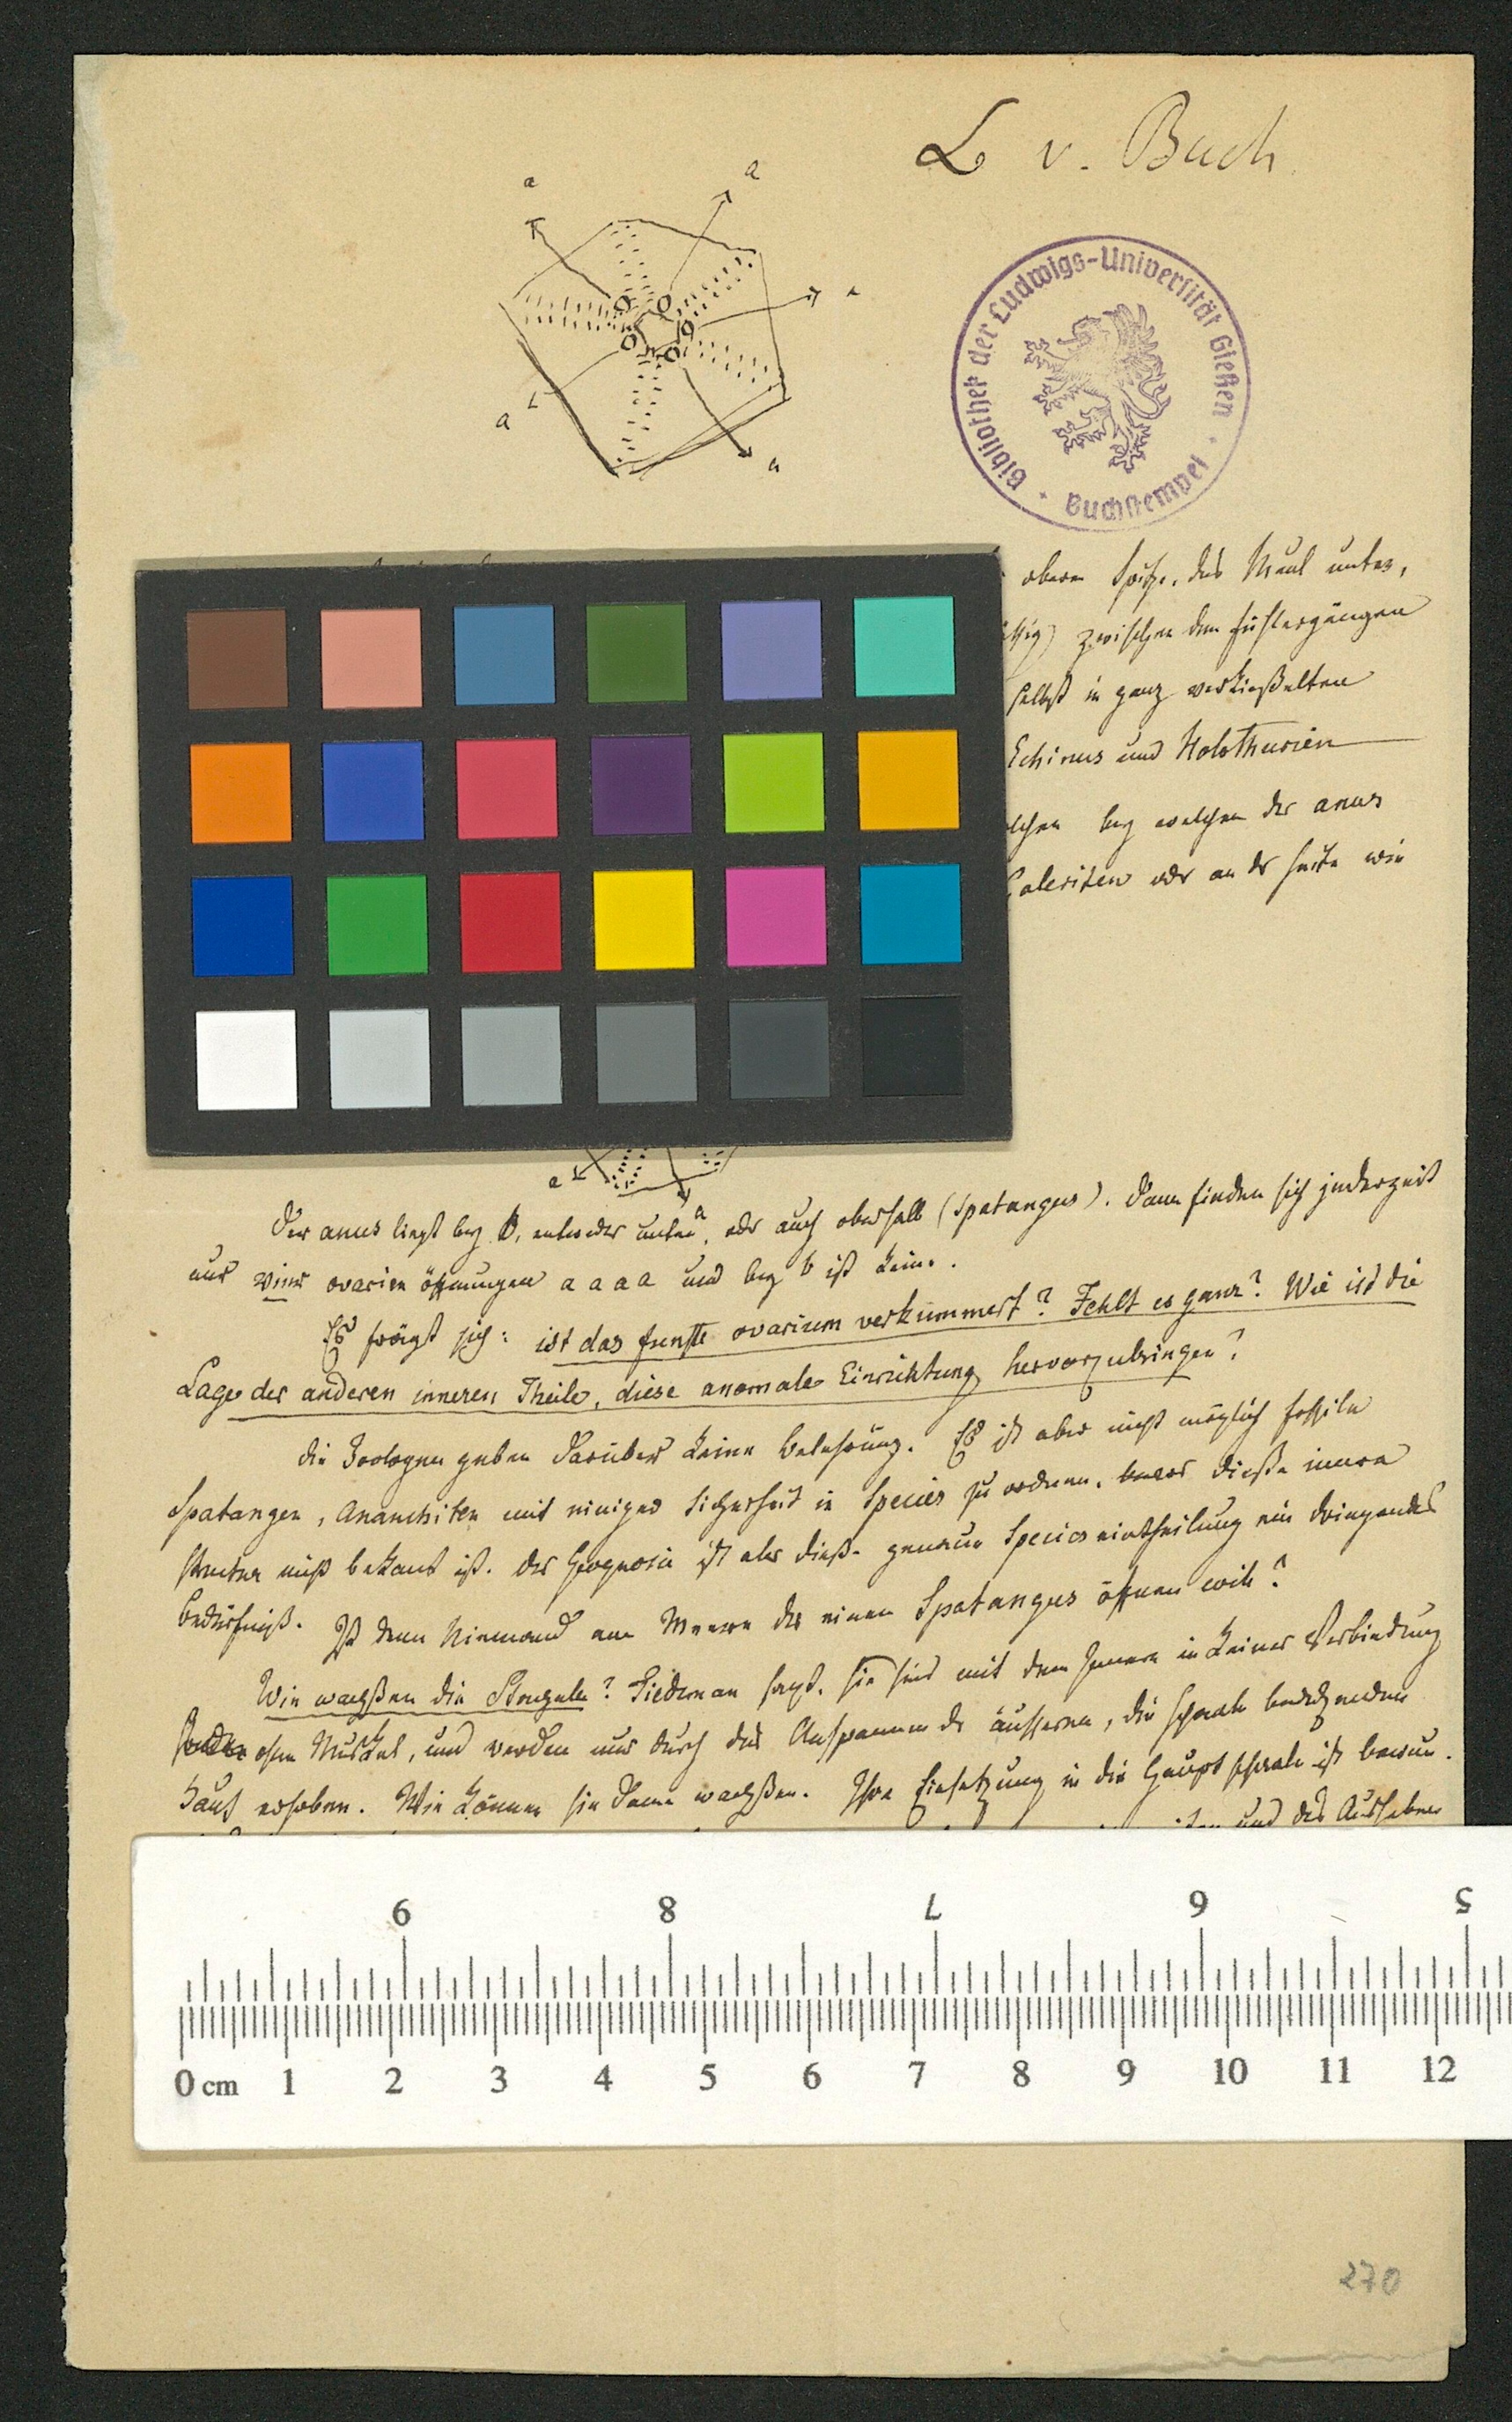 L v. Buch
a
a
a
a
a
Bibliothek der Ludwigs-Universität Gießen
Buchstempel
obern Spitze, das Maul unten,
zwischen den Fühlergängen
selbst in ganz verkießelten
Echinus und Holothurien
bey welchen der anus
Galeriten oder an der Seite wie
a
a
Der anus liegt bey b, entweder unten, oder auch oberhalb (Spatangus). Dann finden sich jederzeit
nur vier ovarien öffnungen a a a a und bey b ist keine.
Es frägt sich: ist das funfte ovarium verkümmert? Fehlt es ganz? Wie ist die
Lage der anderen inneren Theile, diese anomale Einrichtung hervorzubringen?
Die Zoologen geben darüber keine Belehrung. Es ist aber nicht möglich fossile
Spatangen, Ananchiten mit einiger Sicherheit in Species zu ordnen, bevor dieße innere
Structur nicht bekant ist. Der Geognosie ist aber dieße genaue Specieseintheilung ein dringendes
Bedürfniß. Ist denn Niemand am Meere der einen Spatangus öffnen will?
Wie wachßen die Stacheln? Tiedeman sagt, sie sind mit dem Innern in keiner Verbindung
ohne Muskel, und werden nur durch das Anspannen der äusseren, die Schaale bedeckenden
Haut erhoben. Wie können sie dann wachßen. Ihre Einsetzung in die Hauptschaale ist bewun-
und des Aushebens
9
8
7
6
5
0 cm 1 2 3 4 5 6 7 8 9 10 11 12
270